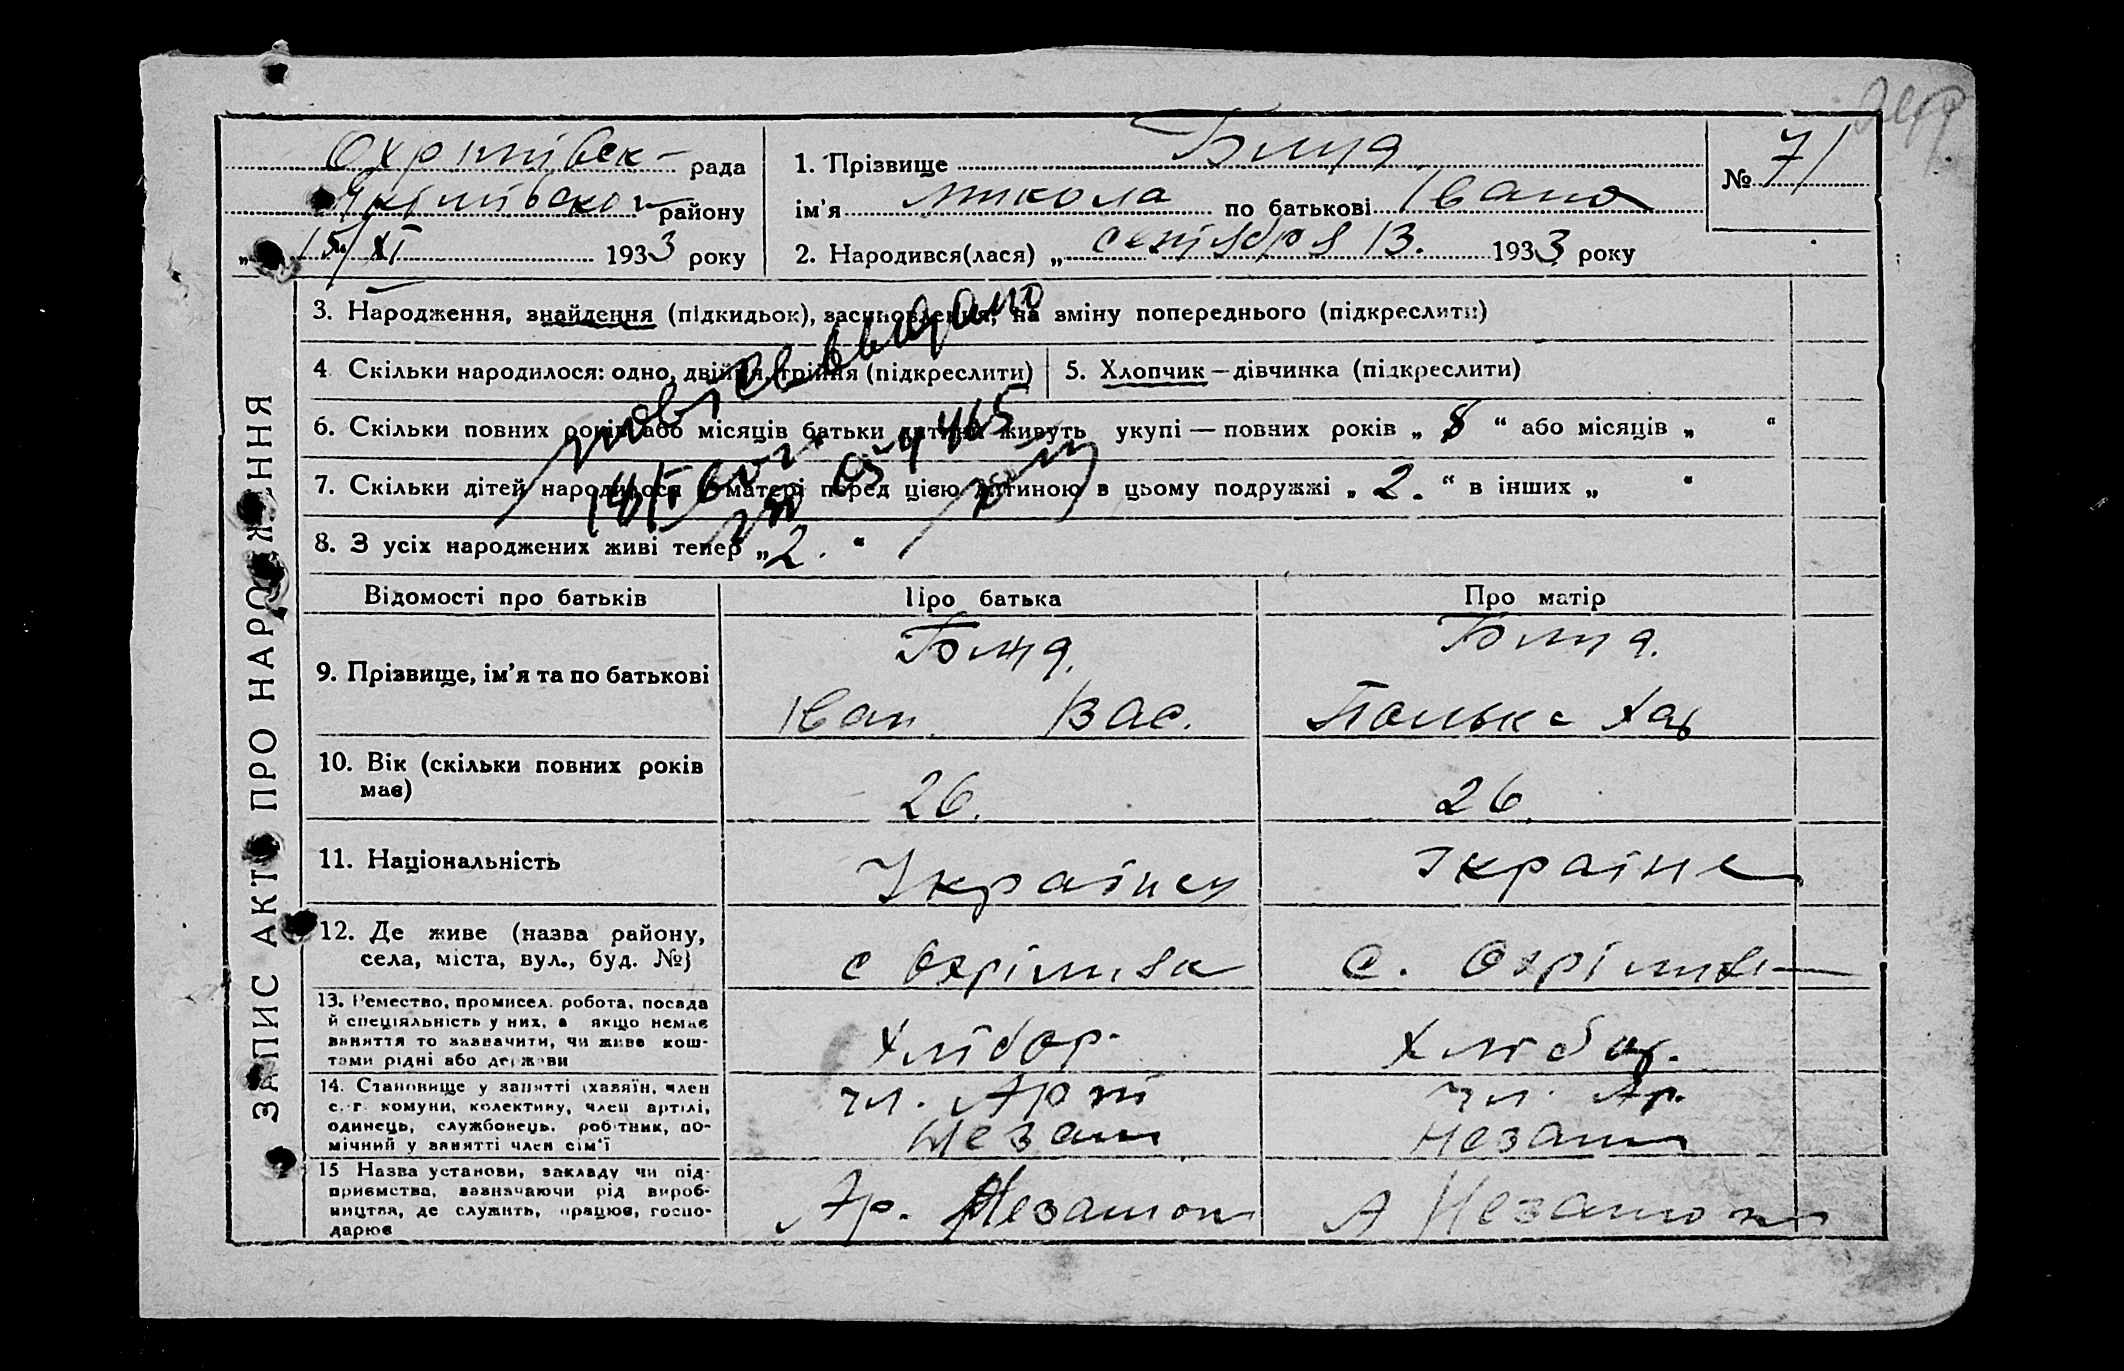 Охрімівск рада
району
15/XI 1933 року
1. Прізвище Бища
ім'я Микола по батькові Івано
№ 71
2. Народився(лася) „ сентября 13. 1933 року
3. Народження, знайдення (підкидьок), засиновлення, на зміну попереднього (підкреслити)
4 Скільки народилося: одно, двійня, трійня (підкреслити)
5. Хлопчик — дівчинка (підкреслити)
6. Скільки повних років або місяців батьки дитини живуть укупі — повних років „ 8 “ або місяців „ “
7. Скільки дітей народилося у матері перед цією дитиною в цьому подружжі „ 2. “ в інших „ “
8. З усіх народжених живі тепер „ 2. “
ЗАПИС АКТУ ПРО НАРОДЖЕННЯ
Відомості про батьків Про батька Про матір
9. Прізвище, ім'я та по батькові
Бища. Бища.
Іван Вас. Полька Хар
10. Вік (скільки повних років
має)
26. 26
11. Національність
Українец Україне
12. Де живе (назва району,
села, міста, вул., буд. №)
с Охрімівк с. Охрімів
13. Ремество, промисел, робота, посада
й спеціяльність у них, а якщо немає
заняття то зазначити, чи живе кош-
тами рідні або держави
Хлібор. Хлібор.
14. Становище у занятті (хазяїн, член
с.-г. комуни, колективу, член артілі,
одинець, службовець, робітник, по-
мічний у занятті член сім'ї
чл. Арт чл. Ар.
Незам Незам
15 Назва установи, закладу чи під-
приємства, зазначаючи рід вироб-
ництва, де служить, працює, госпо-
дарює
Ар. Незаможн А Незаможн